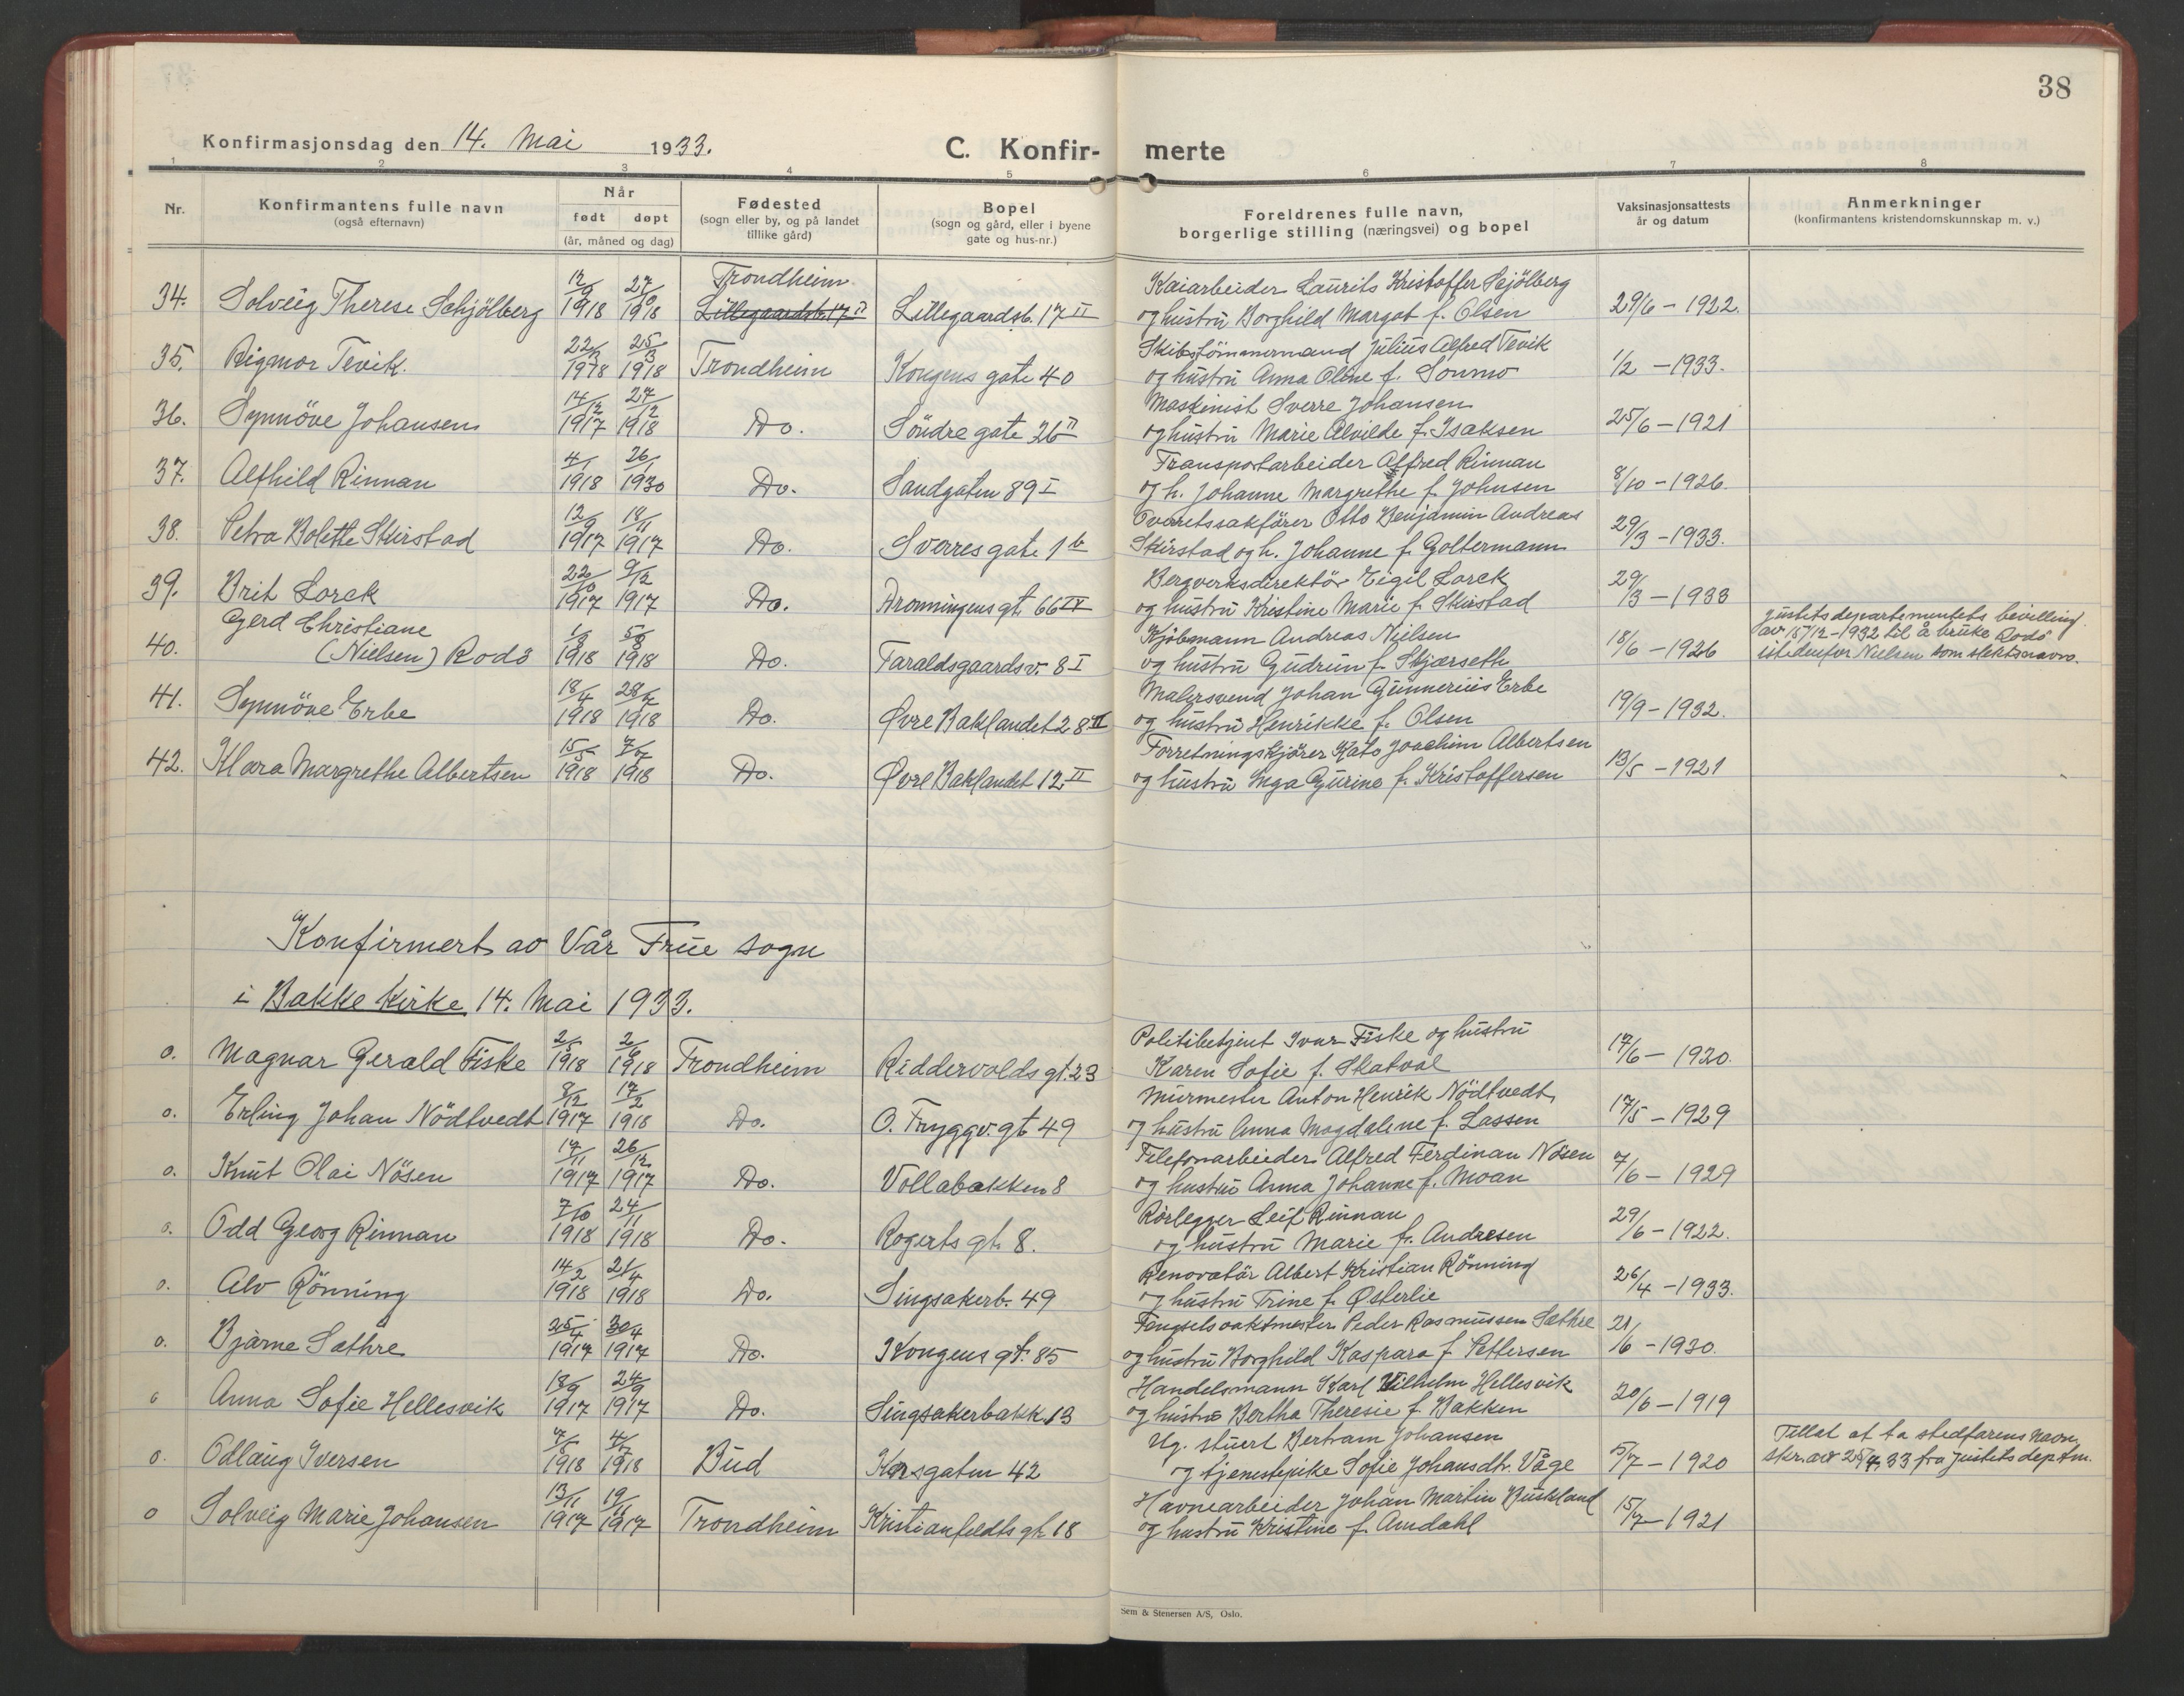 38
Konfirmasjonsdag den 14. Mai 1933.
C. Konfir- merte
1 2 3 4 5 6 7 8
Nr.
Konfirmantens fulle navn
(også efternavn)
Når
født døpt
(år, måned og dag)
Fødested
(sogn eller by, og på landet
tillike gård)
Bopel
(sogn og gård, eller i byene
gate og hus-nr.)
Foreldrenes fulle navn,
borgerlige stilling (næringsvei) og bopel
Vaksinasjonsattests
år og datum
Anmerkninger
(konfirmantens kristendomskunnskap m. v.)
Trondheim Kaiarbeider Laurits Kristoffer Schjölberg
34. Solveig Therese Schjölberg 1918 1918 Lillegaardsb. 17 II Lillegaardsb. 17 II og hustru Borghild Margot f. Olsen 29/6 - 1922.
Skibstömmermand Julius Alfred Tevik
35. Rigmor Tevik. 22/2 1918 25/3 1918 Trondheim Kongens gate 40 og hustru Anna Oline f. Sonmo 1/2 - 1933.
Maskinist Sverre Johansen
36. Synnöve Johansen 14/12 1917 27/2 1918 Do. Söndre gate 26 II og hustru Marie Alvilde f. Isaksen 25/6 - 1921
Transportarbeider Alfred Rinnan
37. Alfhild Rinnan 4/1 1918 26/1 1930 Do. Sandgaten 89 I og h. Johanne Margrethe f. Johnsen 8/10 - 1926.
Overretssakförer Otto Benjamin Andreas
38. Petra Bolette Skirstad 12/9 1917 18/11 1917 Do. Sverres gate 1 b Skirstad og h. Johanne f. Goltermann 29/3 - 1933.
Bergverksdirektör Eigil Lorck
39. Brit Lorck 22/10 1917 9/12 1917 Do. Dronningens gt. 66 IV og hustru Kristine Marie f. Skirstad 29/3 - 1933
Gerd Christiane Kjöbmann Andreas Nielsen Justitsdepartementets bevilling
av 15/12-1932 til å bruke Rodö
40. (Nielsen) Rodö 1918 1918 Do. Taraldsgaardsv. 8 I og hustru Gudrun f. Skjærseth 18/6 - 1926 istedenfor Nielsen som slektsnavn.
Malersvend Johan Gunnerius Erbe
41. Synnöve Erbe 18/4 1918 28/7 1918 Do. Øvre Baklandet 28 II og hustru Henrikke f. Olsen 19/9 - 1932.
Forretningskjörer Kato Joachim Albertsen
42. Klara Margrethe Albertsen 15/5 1918 7/7 1918 Do. Øvre Baklandet 12 II og hustru Inga Gurine f. Kristoffersen 13/5 - 1921
Konfirmert av Vår Frue sogn
i Bakke kirke 14. Mai 1933.
Politibetjent Ivar Fiske og hustru
o. Magnar Gerald Fiske 2/5 1918 2/6 1918 Trondheim Riddervolds gt. 23 Karen Sofie f. Skatval 17/6 - 1920.
Murmester Anton Henrik Nödtvedt
o. Erling Johan Nödtvedt 8/12 1917 17/2 1918 Do. O. Tryggv. gt 49 og hustru Anna Magdalene f. Lassen 17/5 - 1929
Telefonarbeider Alfred Ferdinan Nösen
o. Knut Olai Nösen 17/11 1917 26/12 1917 Do. Vollabakken 8 og hustru Anna Johanne f. Moan 7/6 - 1929
Rörlegger Leif Rinnan
o. Odd Georg Rinnan 7/10 1918 24/11 1918 Do. Rogerts gt. 8. og hustru Marie f. Andresen 29/6 - 1922.
Renovatör Albert Kristian Rönning
o. Alv Rönning 14/2 1918 21/4 1918 Do. Singsakerb. 49 og hustru Trine f. Østerlie 26/4 - 1933.
Fengselsvaktmester Peder Rasmussen Sæthre
o. Bjarne Sæthre 25/4 1917 30/4 1917 Do. Kongens gt. 85 og hustru Borghild Kaspara f. Pettersen 21/6 - 1930.
Handelsmann Karl Vilhelm Hellesvik
o Anna Sofie Hellesvik 18/9 1917 24/9 1917 Do. Singsakerbakk. 13 og hustru Bertha Theresie f. Bakken 20/6 - 1919
Ug. stuert Bertram Johansen Tillat at ta stedfarens navn,
o. Odlaug Iversen 1918 4/7 1918 Bud Korsgaten 42 og tjenestepike Sofie Johansdtr. Våge 5/7 - 1920 skr. av 25/4 33 fra Justitsdeptm.
Havnearbeider Johan Martin Buskland
o Solveig Marie Johansen 13/11 1917 19/11 1917 Trondheim Kristianfeldts gt. 18 og hustru Kristine f. Amdahl 15/7 - 1921
Sem & Stenersen A/S, Oslo.